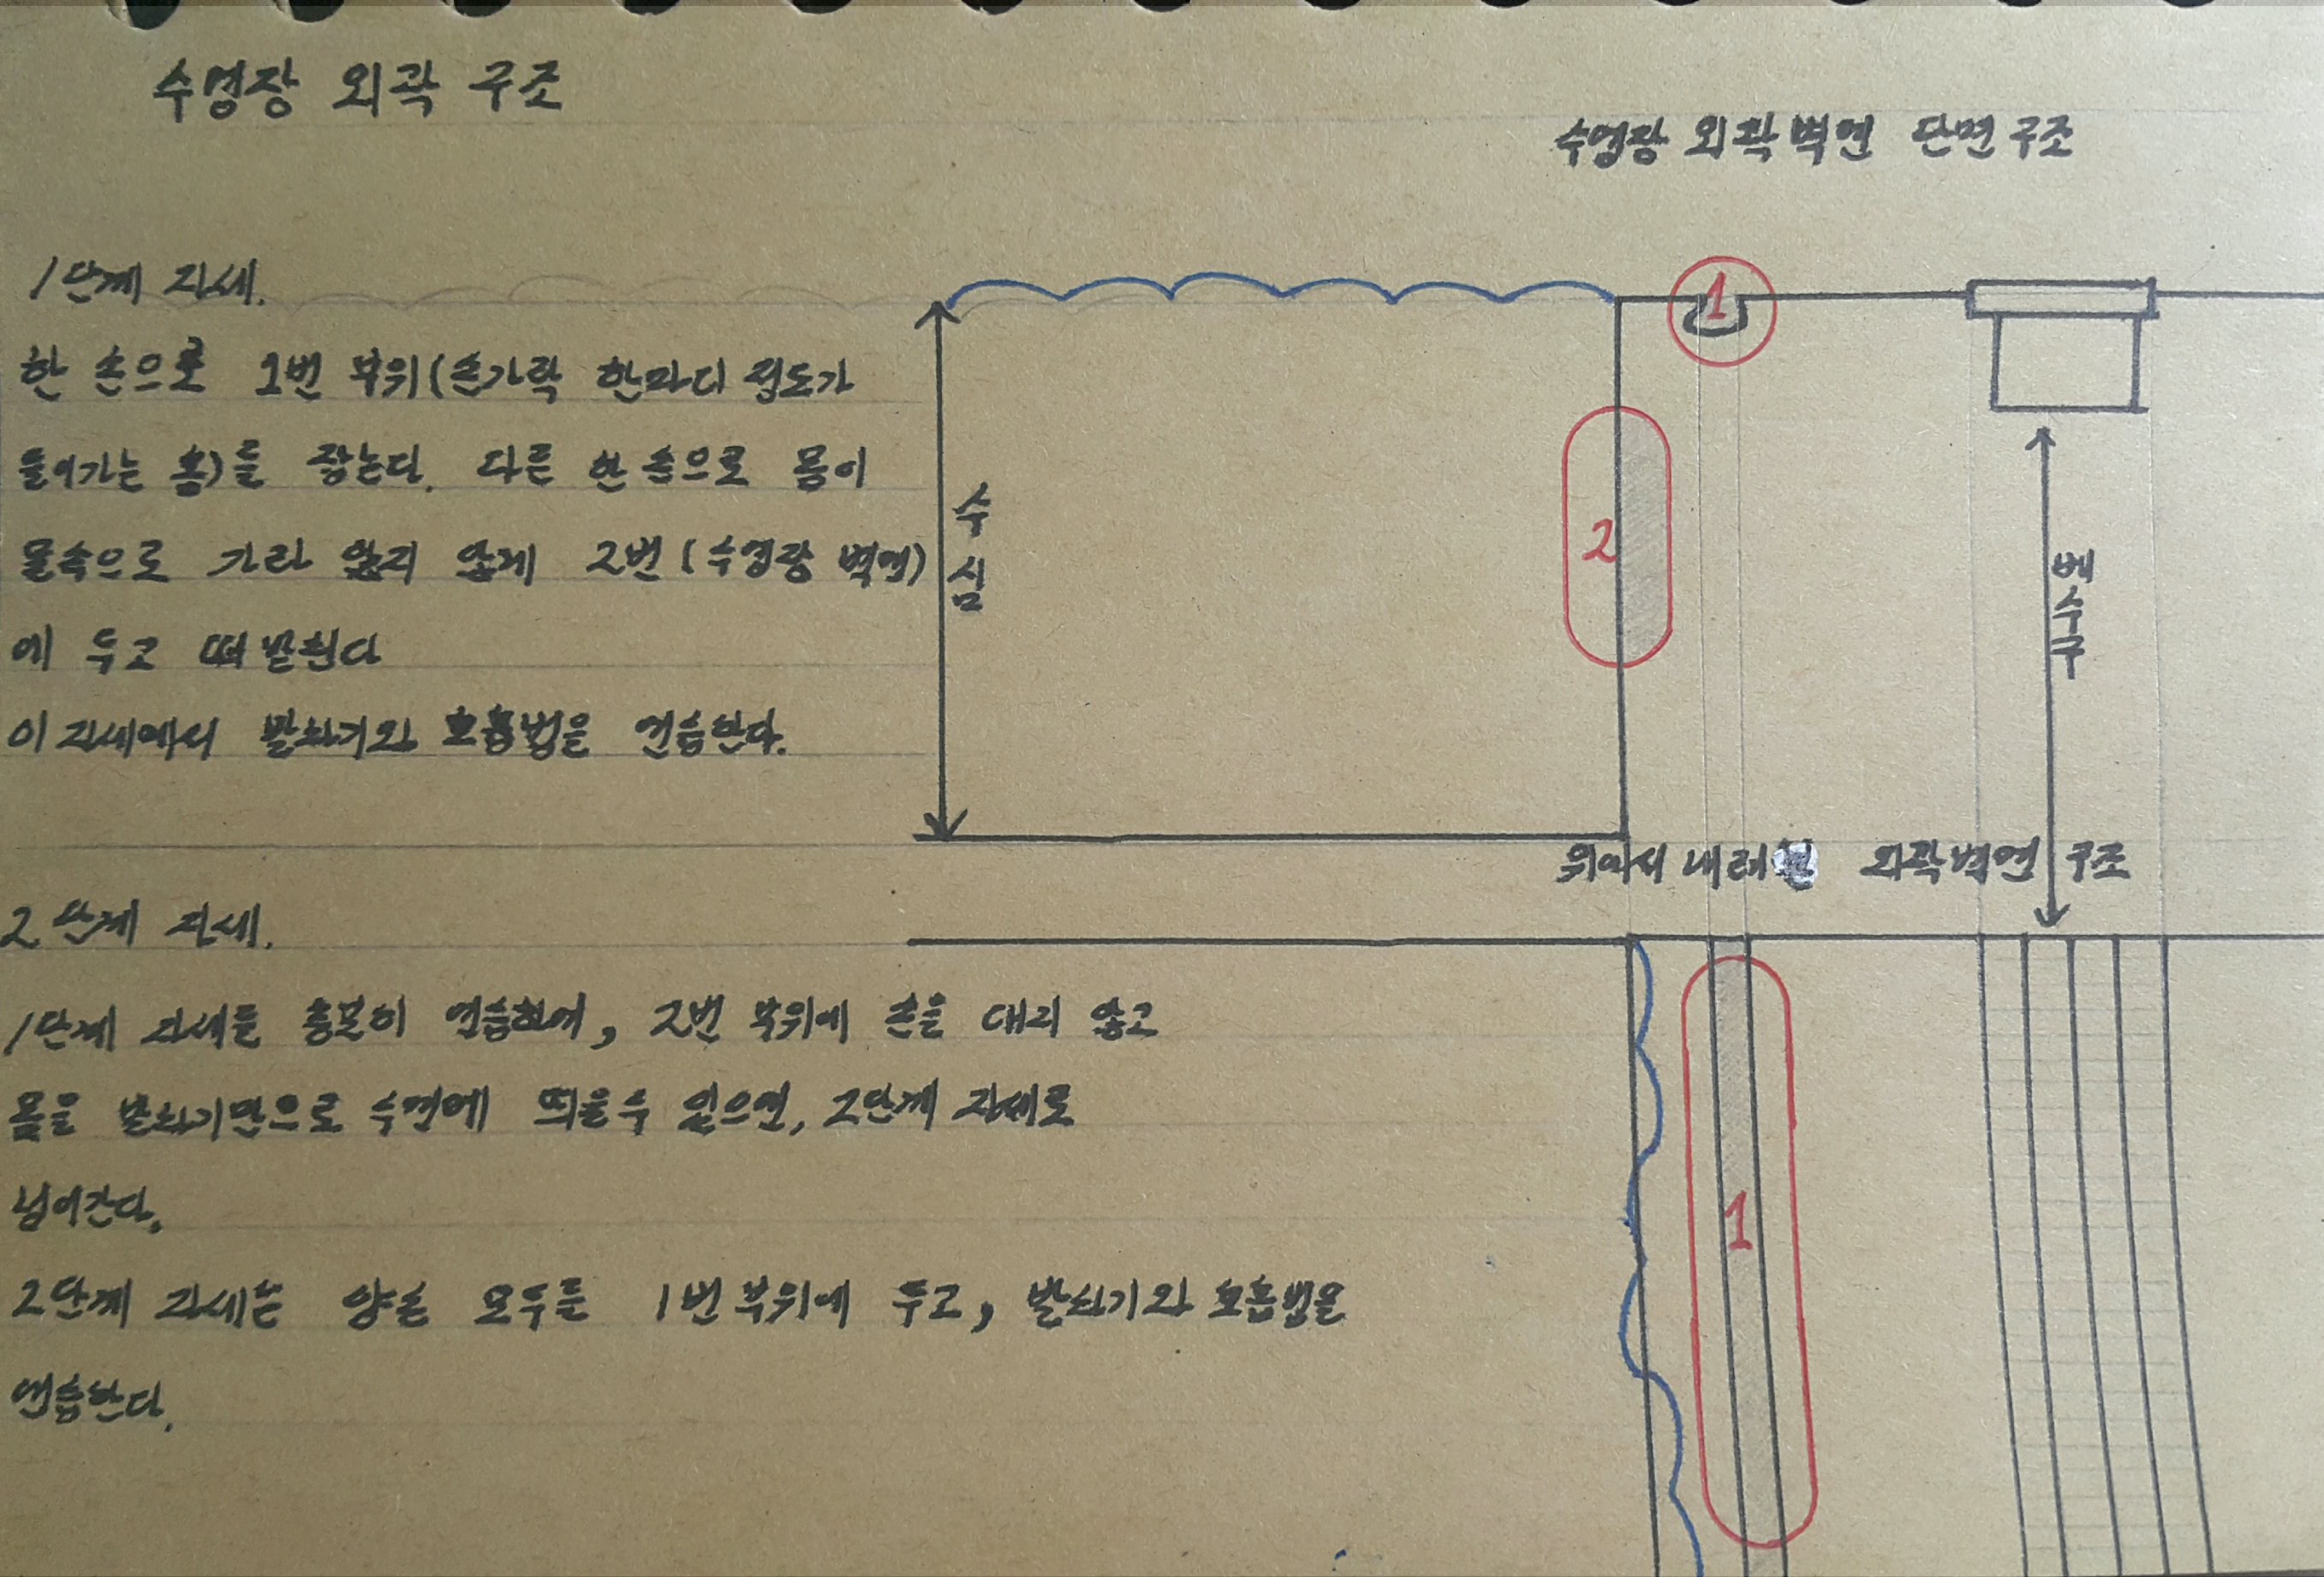 수영장 외곽 구조
수영장 외곽 벽면 단면 구조
1단계 자세.
한 손으로 1번 부위(손가락 한마디 정도가
들어가는 홈)를 잡는다. 다른 한 손으로 몸이
물속으로 가라 앉지 않게 2번(수영장 벽면)
에 두고 떠 받힌다
이 자세에서 발차기와 호흡법을 연습한다.
1
2
수심
배수구
위에서 내려본 외곽벽면 구조
2단계 자세.
1단계 자세를 충분히 연습하여, 2번 부위에 손을 대지 않고
몸을 발차기만으로 수면에 띄울수 있으면, 2단계 자세로
넘어간다.
2단계 자세는 양손 모두를 1번 부위에 두고, 발차기와 호흡법을
연습한다.
1